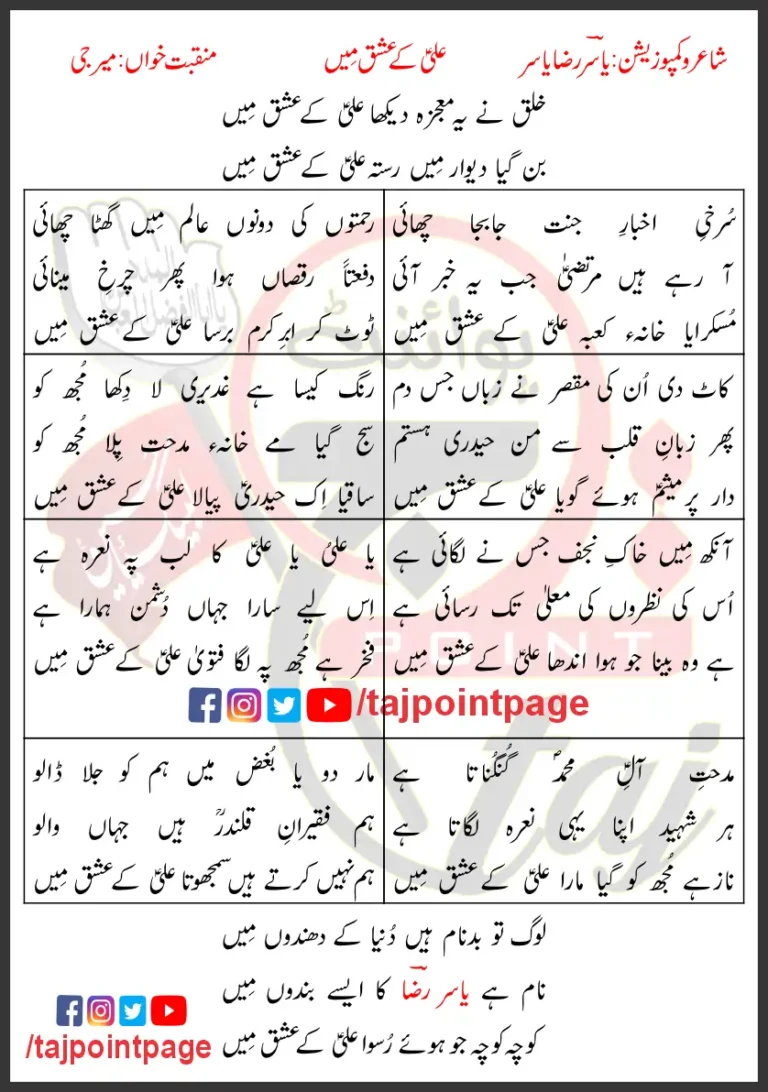 شاعر و کمپوزیشن: یاسرؔ رضا یاسر
علیؑ کے عشق مِیں
منقبت خواں: میر جی
خلق نے یہ معجزہ دیکھا علیؑ کے عشق مِیں
بن گیا دیوار مِیں رستہ علیؑ کے عشق مِیں
سُرخیِ اخبارِ جنت جابجا چھائی
آ رہے ہیں مرتضیٰؑ جب یہ خبر آئی
مُسکرایا خانہء کعبہ علیؑ کے عشق مِیں
رحمتوں کی دونوں عالم مِیں گھٹا چھائی
دفعتاً رقصاں ہوا پھر چرخِ مینائی
ٹوٹ کر ابرِ کرم برسا علیؑ کے عشق مِیں
کاٹ دی اُن کی مقصر نے زباں جس دم
پھر زبانِ قلب سے من حیدری ہستم
دار پر میثمؑ ہوئے گویا علیؑ کے عشق مِیں
رنگ کیسا ہے غدیری لا دِکھا مُجھ کو
سج گیا مے خانہء مدحت پِلا مُجھ کو
ساقیا اِک حیدریؑ پیالا علیؑ کے عشق مِیں
آنکھ مِیں خاکِ نجف جس نے لگائی ہے
اُس کی نظروں کی معلیٰ تک رسائی ہے
ہے وہ بینا جو ہوا اندھا علیؑ کے عشق مِیں
یا علیؑ یا علیؑ کا لب پہ نعرہ ہے
اِس لیے سارا جہاں دُشمن ہمارا ہے
فخر ہے مُجھ پہ لگا فتویٰ علیؑ کے عشق مِیں
/tajpointpage
مدحتِ آلِ محمدؐ گُنگُناتا ہے
ہر شہید اپنا یہی نعرہ لگاتا ہے
ناز ہے مُجھ کو گیا مارا علیؑ کے عشق مِیں
مار دو یا بُغض میں ہم کو جلا ڈالو
ہم فقیرانِ قلندرؒ ہیں جہاں والو
ہم نہیں کرتے ہیں سمجھوتا علیؑ کے عشق مِیں
لوگ تو بدنام ہیں دُنیا کے دھندوں مِیں
نام ہے یاسر رضاؔ کا ایسے بندوں مِیں
کوچہ کوچہ جو ہوئے رُسوا علیؑ کے عشق مِیں
/tajpointpage
پوائنٹ
POINT
taj